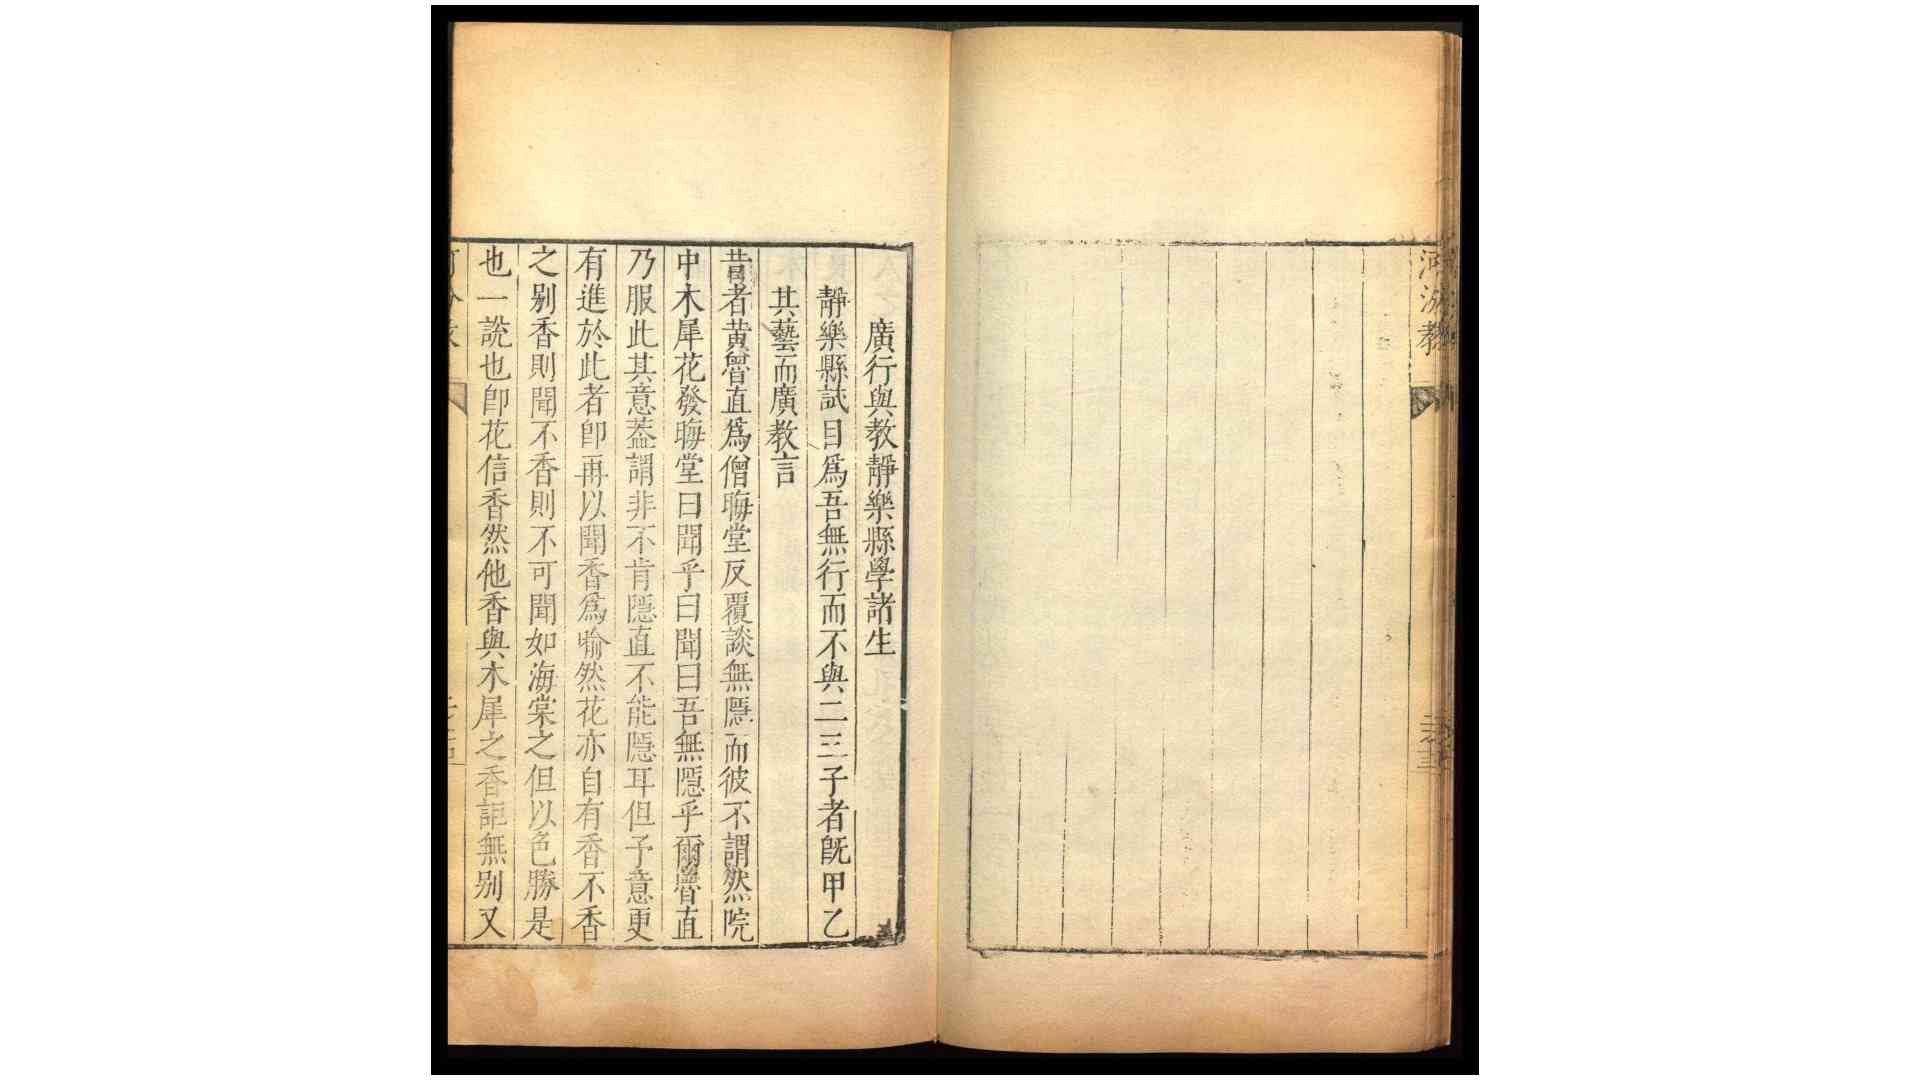 河汾教
廣行與教靜樂縣學諸生
靜樂縣試目爲吾無行而不與二三子者旣甲乙
其藝而廣教言
昔者黄曾直爲僧晦堂反覆談無隱而彼不謂然院
中木犀花發晦堂曰聞乎曰聞曰吾無隱乎爾魯直
乃服此其意葢謂非不肯隱直不能隱耳但予意更
有進於此者卽再以聞香爲喻然花亦自有香不香
之别香則聞不香則不可聞如海棠之但以色勝是
也一說也卽花信香然他香與木犀之香詎無别又